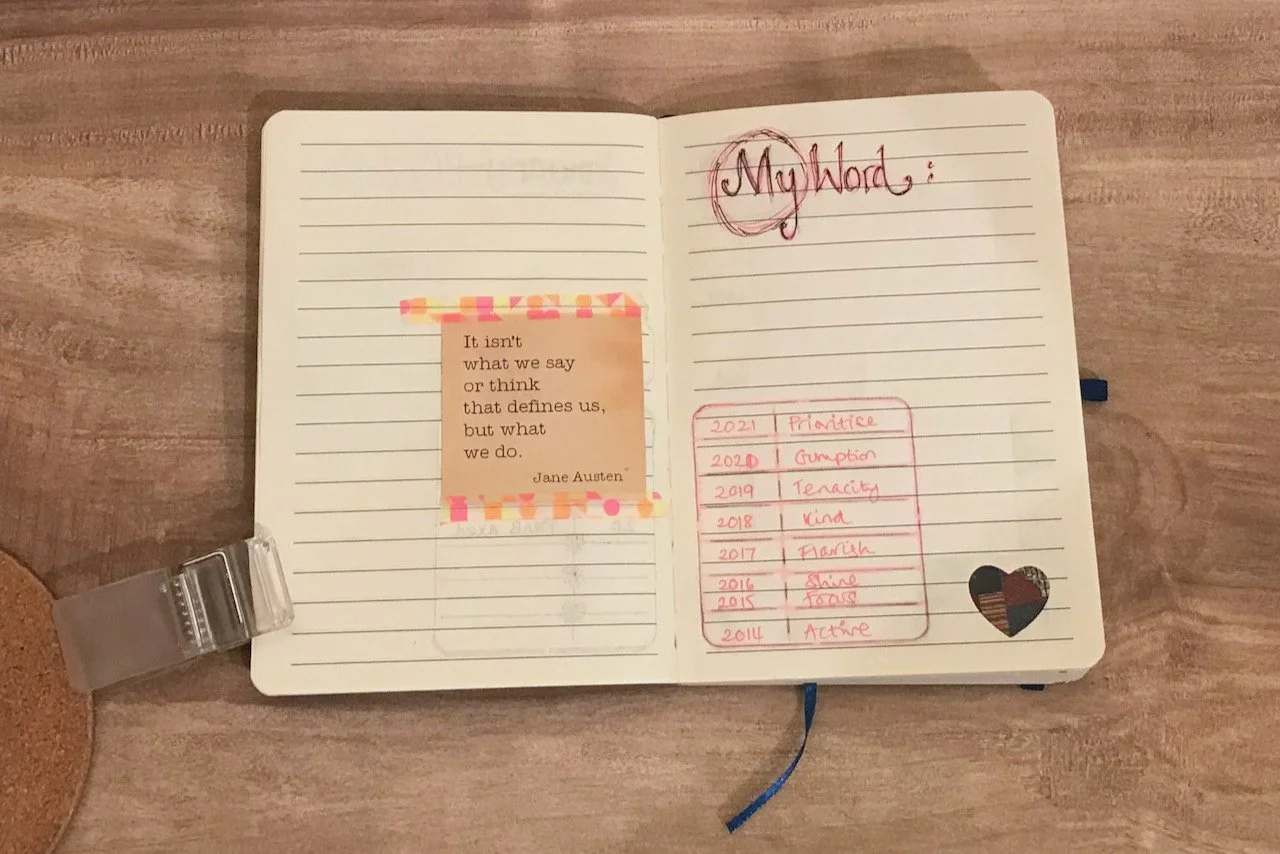 It isn't
what we say
or think
that defines us,
but what
we do.
Jane Austen
My Word:
2021 Prioritise
2020 Gumption
2019 Tenacity
2018 Kind
2017 Flourish
2016 Shine
2015 Focus
2014 Active